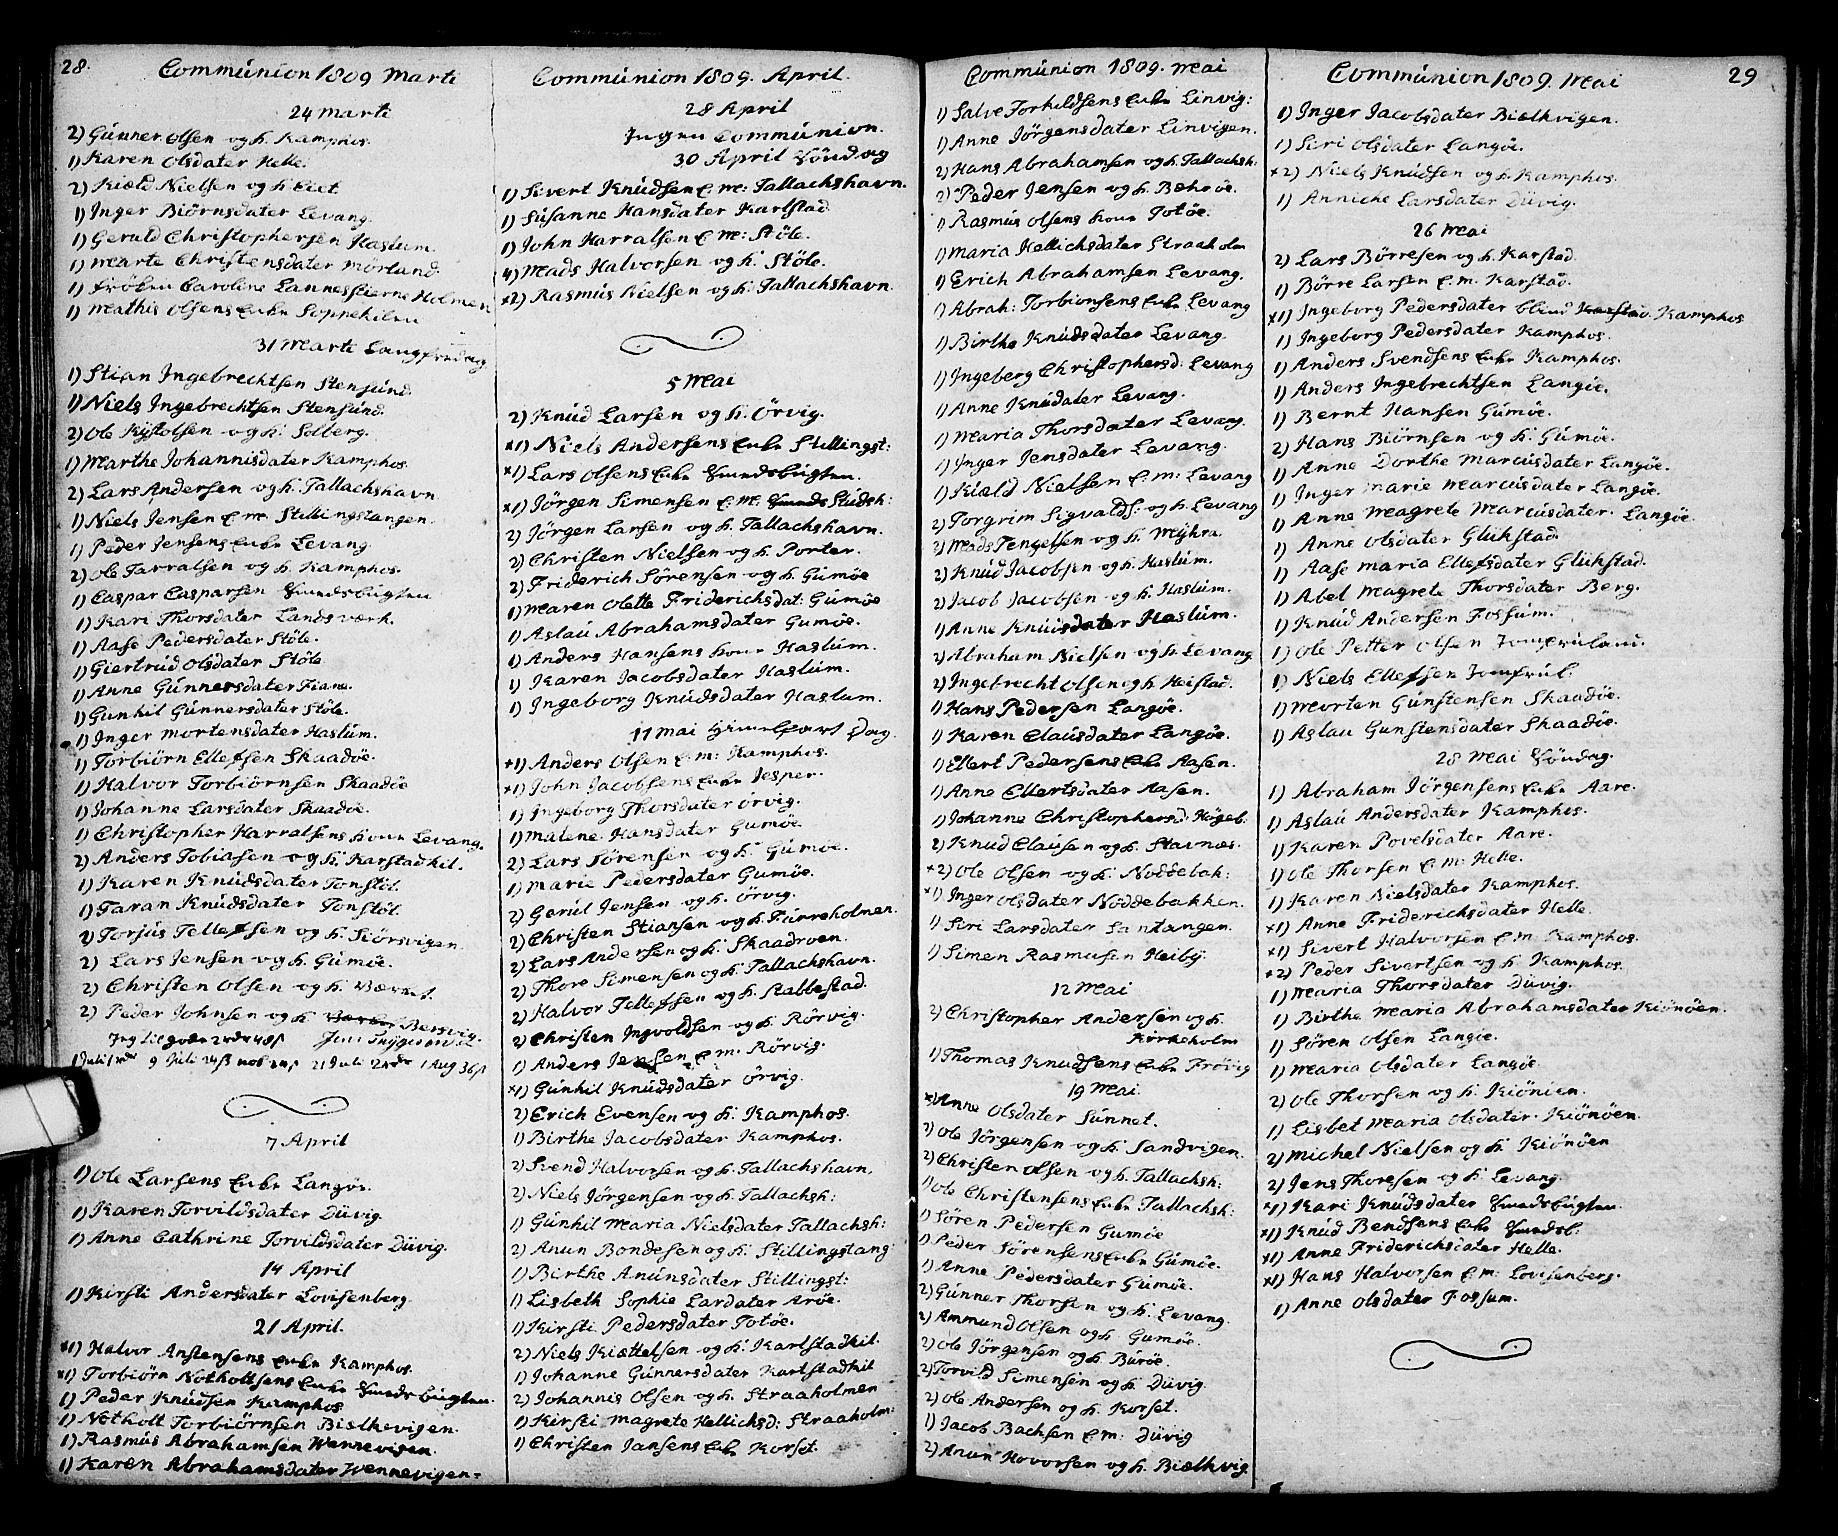 28.
Communion 1809 Marti
24 Marti
2) Gunner Olsen og h. Kamphos.
1) Karen Olsdater Helle.
2) Kiæld Nielsen og h. Eiet
1) Inger Biörnsdater Levang.
1) Geruld Christophersen Haslum.
1) Marte Christensdater Mörland.
1) Fröken Caroline Lannestierne Holmen
1) Mathis Olsens Enke Soppekilen
31 Marti Langfredag
1) Stian Ingebrechtsen Stensund
1) Niels Ingebrechtsen Stensund.
2) Ole Kistolsen og h. Solberg.
1) Marthe Johannisdater Kamphos.
2) Lars Andersen og h. Tallachshavn
1) Niels Jensen E.m. Stillingstangen.
1) Peder Jensens Enke Levang.
2) Ole Tarralsen og h. Kamphos.
1) Caspar Casparsen Smedsbugten
1) Kari Thorsdater Landsværk.
1) Aase Pedersdater Stöle.
1) Giertrud Olsdater Stöle
1) Anne Gunnersdater Fiane.
1) Gunhil Gunnersdater Stöle.
1) Inger Mortensdater Haslum.
1) Torbiörn Ellefsen Skaadöe.
1) Halvor Torbiörnsen Skaadöe
1) Johanne Larsdater Skaadöe.
1) Christopher Harralsens kone Levang.
2) Anders Tobiasen og h. Karstadkil.
1) Karen Knudsdater Tonstöl.
1) Taran Knudsdater Tonstöl.
2) Torjus Tellefsen og h. Siörsvigen.
2) Lars Jensen og h. Gumöe.
2) Christen Olsen og h. Værket.
2) Peder Johnsen og h. Bersvig.
7 April
1) Ole Larsens Enke Langöe.
1) Karen Torvildsdater Düvig.
1) Anne Cathrine Torvildsdater Düvig.
14 April
1) Kirsti Andersdater Lovisenberg.
21 April.
*1) Halvor Anstensens Enke Kamphos.
*1) Torbiörn Notholtsens Enke Smedsbugten.
1) Peder Knudsen Kamphos
1) Notholt Torbiörnsen Bielkevigen.
1) Rasmus Abrahamsen Wennevigen.
1) Karen Abrahamsdater Wennevigen.
Communion 1809. April.
28 April
Ingen Communion.
30 April Söndag
1) Sivert Knudsen E.m: Tallachshavn.
1) Susanne Hansdater Karlstad
1) John Harralsen E.m: Stöle.
4) Mads Halvorsen og h. Stöle.
*2) Rasmus Nielsen og h. Tallachshavn.
5 Mai
2) Knud Larsen og h. Örvig.
*1) Niels Andersens Enke Stillingst:
*1) Lars Olsens Enke Smedsbugten.
*1) Jörgen Simensen E.m. Smeds Studsh:
2) Jörgen Larsen og h. Tallachshavn.
2) Christen Nielsen og h. Porter.
2) Friderich Sörensen og h. Gumöe
1) Maren Olette Friderichsdat: Gumöe
1) Aslau Abrahamsdater Gumöe.
1) Anders Hansens kone Haslum.
1) Karen Jacobsdater Haslum.
1) Ingeborg Knudsdater Haslum.
11 Mai Himelfart Dag.
*1) Anders Olsen E.m: Kamphos.
*1) John Jacobsens Enke Jesper.
1) Ingeborg Thorsdater Örvig.
1) Malene Hansdater Gumöe
2) Lars Sörensen og h. Gumöe.
1) Marie Pedersdater Gumöe.
2) Gerul Jensen og h. Örvig.
2) Christen Stiansen og h. Furreholmen.
2) Lars Andersen og h. Skaadroen.
2) Thore Simensen og h. Tallachshavn.
2) Halvor Tellefsen og h. Stabbestad.
2) Christen Ingvoldsen og h. Rörvig.
1) Anders Jensen E.m: Rörvig.
*1) Gunhil Knudsdater Örvig.
2) Erich Evensen og h. Kamphos.
1) Birthe Jacobsdater Kamphos.
2) Svend Halvorsen og h. Tallachshavn.
2) Niels Jörgensen og h. Tallachsh:
1) Gunhil Maria Nielsdater Tallachsh:
2) Anun Bondesen og h. Stillingstang:
1) Birthe Anunsdater Stillingst:
1) Lisbeth Sophie Lardater Aröe.
1) Kirsti Pedersdater Totöe.
2) Niels Kiættelsen og h. Karlstadkil.
1) Johanne Gunnersdater Karlstadkil
2) Johannis Olsen og h. Straaholmen
1) Kirsti Magrete Hellichsd: Straaholm:
1) Christen Jansens Enke Korset.
Communion 1809. Mai
1) Salve Torkildsens Enke Linvig:
1) Anne Jörgensdater Linvigen.
2) Hans Abrahamsen og h. Tallachsh:
2) Peder Jensen og h. Bærøe.
1) Rasmus Olsens kone Totöe.
1) Maria Hellichsdater Straaholm
1) Erich Abrahamsen Levang.
1) Abrah: Torbionsens Enke Levang
1) Birthe Knudsdater Levang.
1) Ingeberg Christophersd: Levang
1) Anne Knudater Levang.
1) Maria Thorsdater Levang.
1) Inger Jensdater Levang.
1) Kiæld Nielsen E.m: Levang
2) Torgrim Sigvalds: og h. Levang
2) Mads Tengelsen og h. Myhra.
2) Knud Jacobsen og h. Haslum.
2) Jacob Jacobsen og h. Haslum.
1) Anne Knudsdater Haslum.
2) Abraham Nielsen og h. Levang.
2) Ingebrecht Olsen og h. Heistad.
1) Hans Pedersen Langöe.
1) Karen Clausdater Langöe.
1) Ellert Pedersens Enke Aasen.
1) Anne Ellertsdater Aasen.
1) Johanne Christophersd: Högeb.
2) Knud Clausen og h. Stavnæs.
*2) Ole Olsen og h. Noddebak:
*1) Inger Olsdater Noddebakken.
1) Siri Larsdater Santangen.
1) Simen Rasmusen Heiby.
12 Mai
2) Christopher Andersen og h.
Kirkeholm
1) Thomas Knudsens Enke Frövig
19 Mai.
*1) Anne Olsdater Sunnet.
2) Ole Jörgensen og h. Sandvigen.
2) Christen Olsen og h. Tallachsh:
1) Ole Christensens Enke Tallachsh:
1) Sören Pedersen Gumöe
1) Peder Sörensens Enke Gumöe.
1) Anne Pedersdater Gumöe.
2) Gunner Thorsen og h. Levang.
2) Ammund Olsen og h. Gumöe.
2) Ole Jörgensen og h. Buröe.
2) Torvild Simensen og h. Düvig.
2) Ole Andersen og h. Korset.
1) Jacob Bachsen E.m: Düvig
2) Anun Hovorsen og h. Biælkvig.
Communion 1809. Mai
29
1) Inger Jacobsdater Biælkvigen.
1) Siri Olsdater Langöe.
*2) Niels Knudsen og h. Kamphos.
1) Anniche Larsdater Düvig.
26 Mai
2) Lars Börresen og h. Karstad.
1) Börre Larsen E.m. Karstad.
*1) Ingeborg Pedersdater blind Karstad. Kamphos
1) Ingeborg Pedersdater Kamphos.
1) Anders Svendsens Enke Kamphos.
1) Anders Ingebrechtsen Langöe.
1) Bernt Hansen Gumöe.
2) Hans Biörnsen og h. Gumöe.
1) Anne Dorthe Marcusdater Langöe.
1) Inger Marie Marcusdater Langöe.
1) Anne Magrete Marcusdater. Langöe.
1) Anne Olsdater Glükstad
1) Aase Maria Ellefsdater Glükstad.
1) Abel Magrete Thorsdater Berg.
1) Knud Andersen Fossum.
1) Ole Petter Olsen Jomfruland.
1) Niels Ellefsen Jomfrul:
1) Morten Gunstensen Skaadöe.
1) Aslau Gunstensdater Skaadöe.
28 Mai Söndag.
1) Abraham Jörgensens Enke Aare.
1) Aslau Andersdater Kamphos.
1) Karen Povelsdater Aare.
1) Ole Thorsen E.m: Helle.
1) Karen Nielsdater Kamphos.
*1) Anne Friderichsdater Helle.
*1) Sivert Halvorsen E.m. Kamphos.
*2) Peder Sivertsen og h. Kamphos.
1) Maria Thorsdater Düvig.
1) Birthe Maria Abrahamsdater Kiönöen.
1) Sören Olsen Langöe.
1) Maria Olsdater Langöe.
2) Ole Thorsen og h. Kiönöen.
1) Lisbet Maria Olsdater. Kiönöen.
2) Michel Nielsen og h. Kiönöen
2) Jens Thoresen og h. Levang.
*1) Kari Knudsdater Smedsbugten.
*1) Knud Bendsens Enke Smedsb:
*1) Anne Friderichsdater Helle.
*1) Hans Halvorsen E.m: Lovisenberg.
1) Anne Olsdater Fossum.